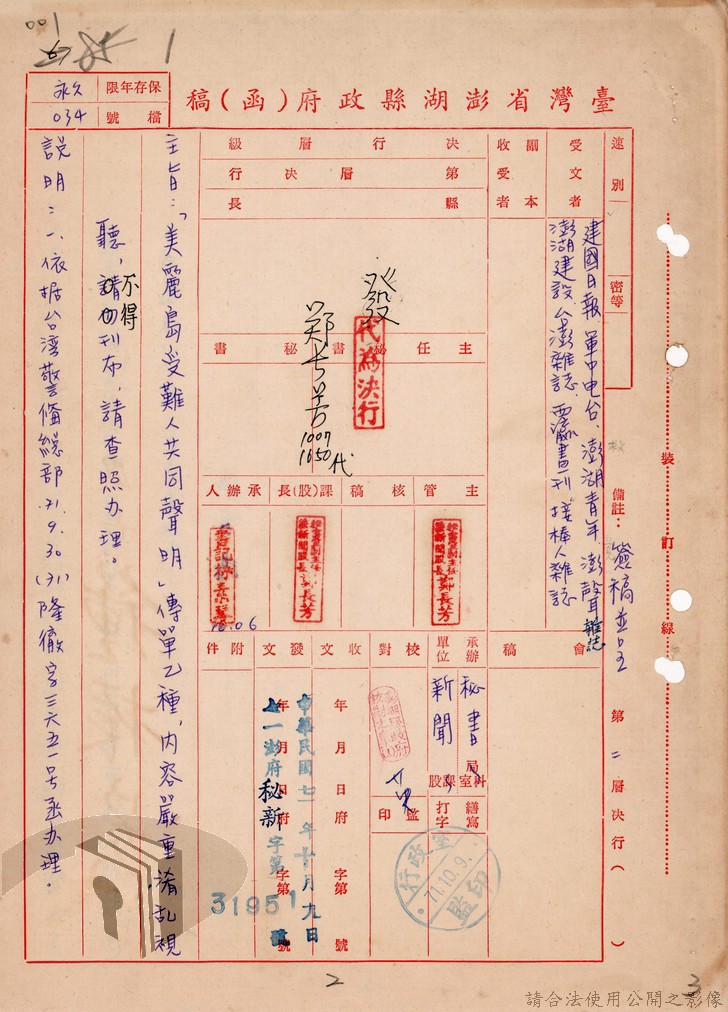 001
1
臺灣省澎湖縣政府(函)稿
保存年限
永久
檔號
034
速別
密等
備註：
簽稿並呈
第二層決行(　)
裝訂線
受文者
建國日報、軍中电台、澎湖青年、澎聲雜誌
澎湖建設、台澎雜誌、西瀛畫刊、接棒人雜誌
副本
收受者
決行層級
第　層決行
縣長
發
代為決行
主任秘書
秘書
鄭長芳
1007
1650
代
主管
核稿
課(股)長
承辦人
新聞股長
新聞股長
10.06
會稿
承辦單位
秘書
新聞
局科室課股
繕寫
打字
校對
監印
行政室
71.10.9.
監印
收文
年　月　日　府　字第　號
發文
年　月　日　府　字第　號
中華民國七一年十月九日
七一澎府秘新字第31951號
附件
主旨：「美麗島受難人共同聲明」傳單乙種，內容嚴重淆乱視
聽，請勿刊布，請查照办理。
不得
說明：一、依据台湾警備總部71.9.30(71)隆徹字三六五一号函办理。
2
3
請合法使用公開之影像